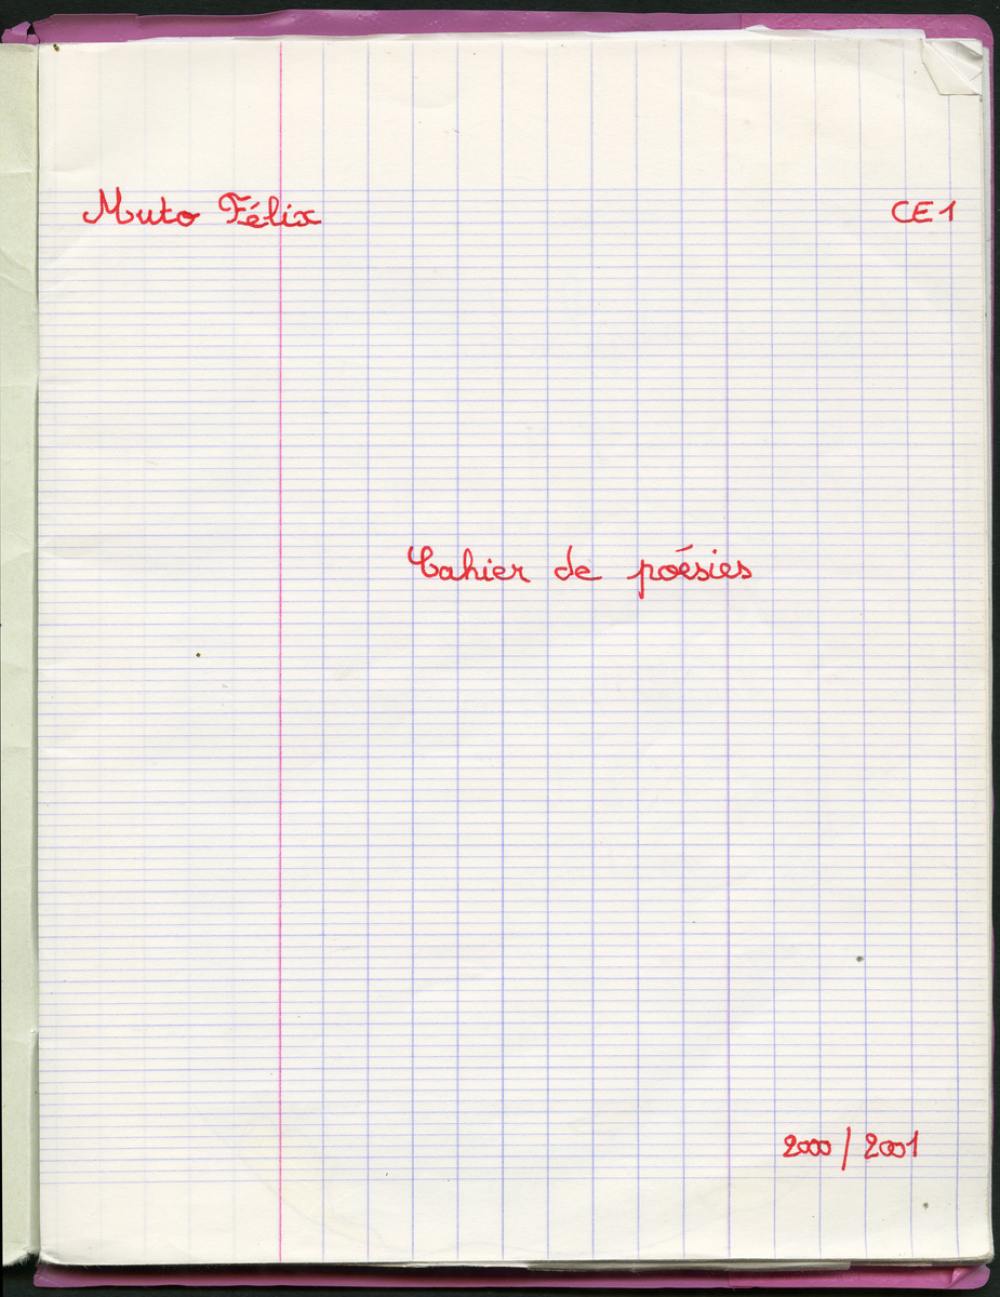 Muto Félix
CE1
Cahier de poésies
2000 / 2001